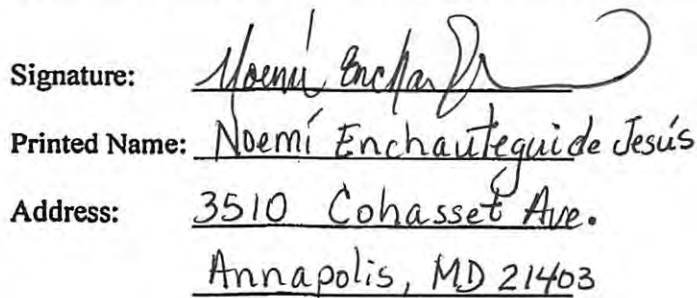 Signature: Noemí Enchau
Printed Name: Noemí Enchautegui de Jesús
Address: 3510 Cohasset Ave.
Annapolis, MD 21403